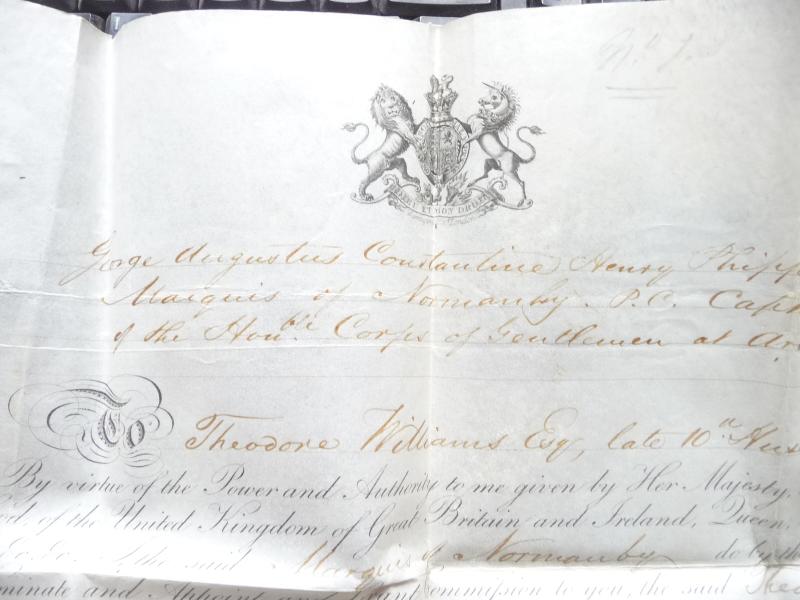 DIEU ET MON DROIT
George Augustus Constantine Henry Phipp
Marquis of Normanby. P.C. Capt
of the Honble. Corps of Gentlemen at Ar
To Theodore Williams Esq, late 10th Hus
By virtue of the Power and Authority to me given by Her Majesty,
of the United Kingdom of Great Britain and Ireland, Queen,
the said Marquis of Normanby do by th
minate and Appoint and Grant Commission to you, the said Theo